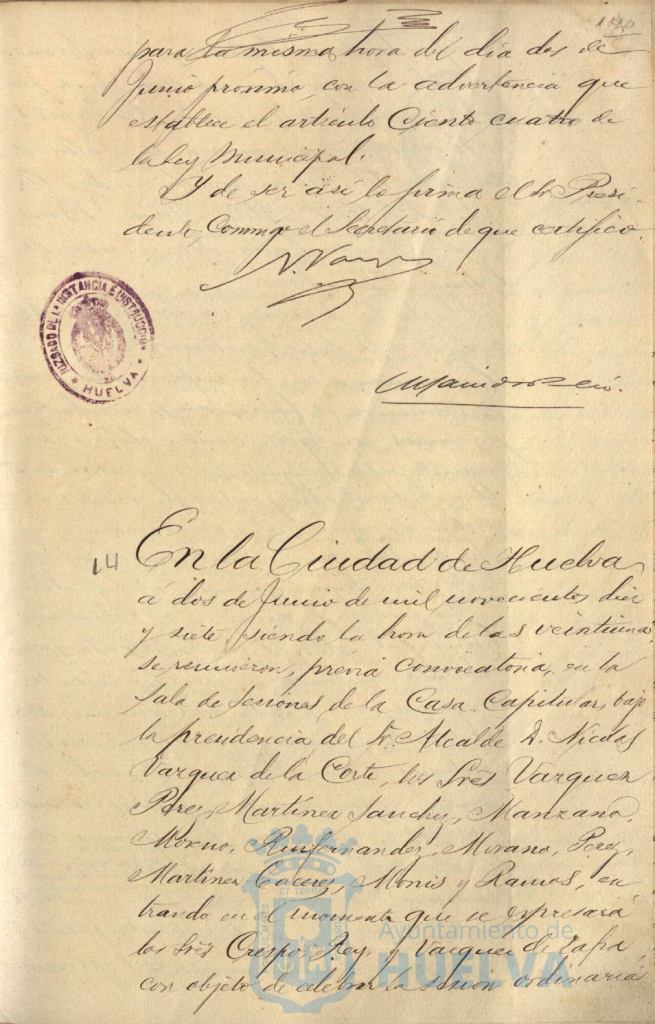 140
para la misma hora del dia dos de
Junio proximo, con la advertencia que
establece el articulo Ciento cuatro de
la Ley Municipal.
Y de ser asi lo firma el Sr. Presi-
dente, Conmigo el Secretario de que certifico.
JUZGADO DE 1ª INSTANCIA E INSTRUCCION
* HUELVA *
14
En la Ciudad de Huelva
á dos de Junio de mil novecientos diez
y siete siendo la hora de las veintiuna
se reunieron, previa convocatoria, en la
Sala de Sesiones de la Casa Capitular, bajo
la presidencia del Sr. Alcalde D. Nicolas
Vazquez de la Corte, los Sres Vazquez
Perez, Martinez Sanchez, Manzano,
Moreno, Ruifernandez, Morano, Perez,
Martinez Caceres, Monis y Ramos, en
trando en el momento que se expresará
los Sres Crespo, Rey y Vazquez de Zafra
con objeto de celebrar la sesion ordinaria
Ayuntamiento de
HUELVA